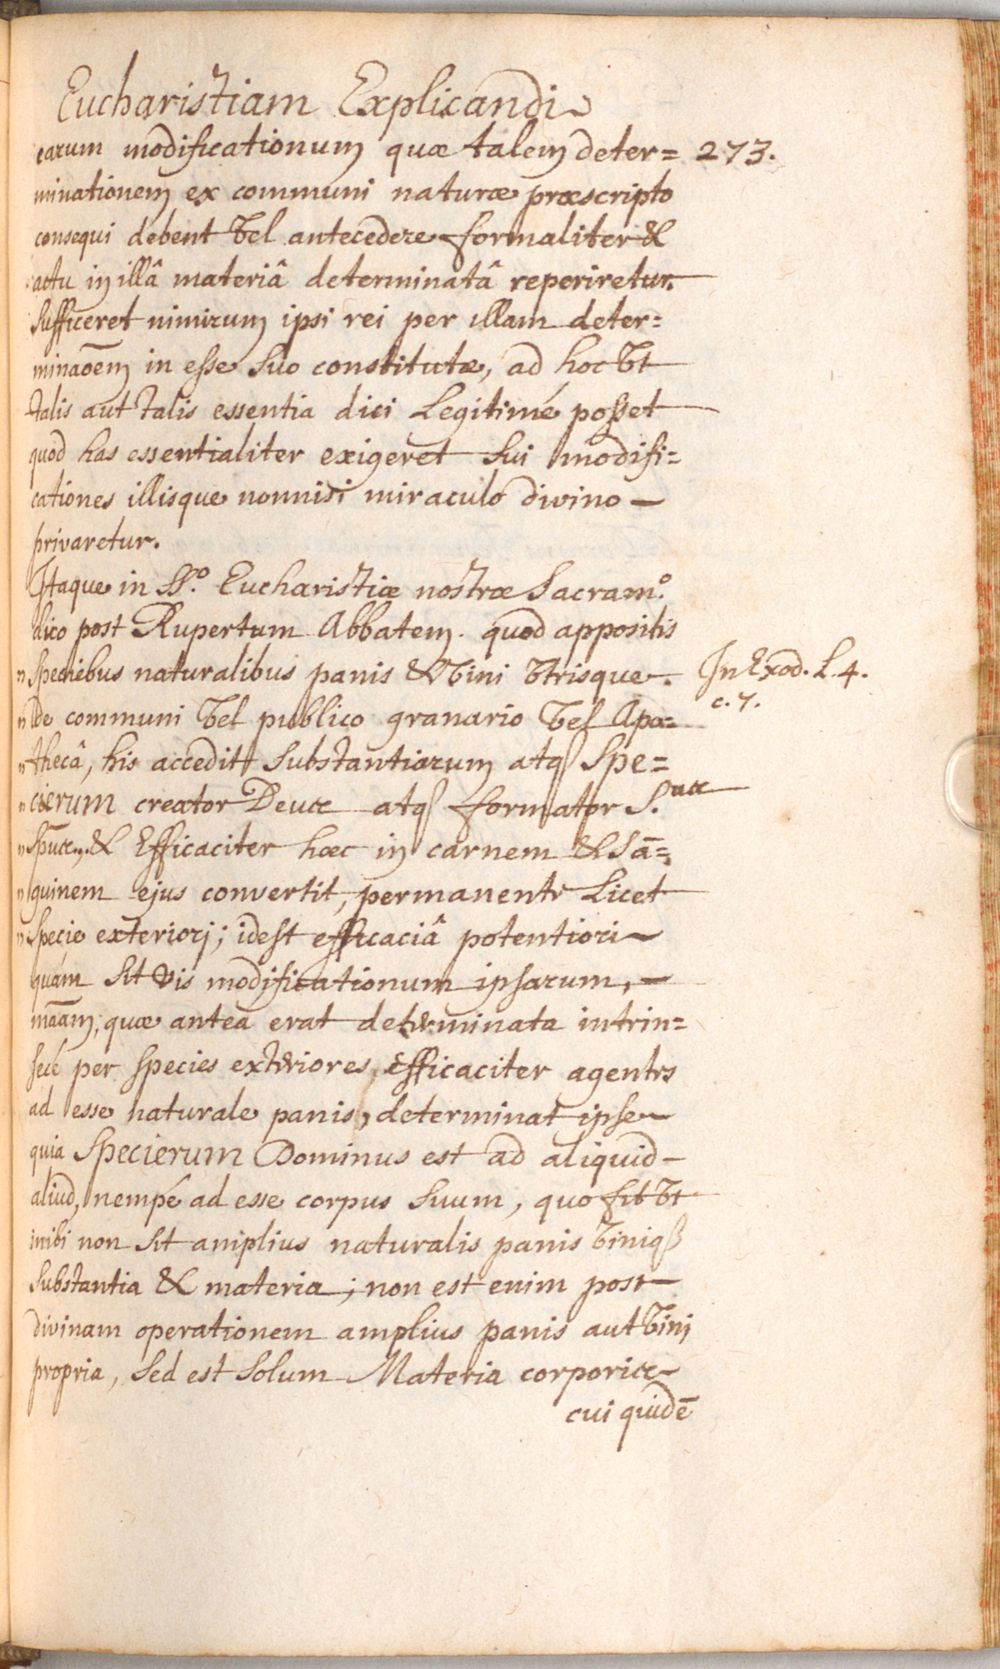 Eucharistiam Explicandi
earum modificationum quæ talem deter= 273.
minationem ex communi naturæ præscripto
consequi debent vel antecedere formaliter &
actu in illâ materiâ determinatâ reperiretur.
Sufficeret nimirum ipsi rei per illam deter=
minaõem in esse suo constitutæ, ad hoc vt
talis aut talis essentia dici Legitimé posset
quod has essentialiter exigeret sui modifi=
cationes illisque nonnisi miraculo divino —
privaretur.
Itaque in SS.º Eucharistiæ nostræ Sacram.º
dico post Rupertum Abbatem. quod appositis
" speciebus naturalibus panis & vini vtrisque. In Exod. L. 4.
c. 7.
" de communi vel publico granario vel Apo=
" thecâ, his accedit substantiarum atq Spe=
" cierum creator Deus atq formator S.
" & Efficaciter hæc in carnem & Sã=
" guinem ejus convertit, permanente Licet
" Specie exteriori; idest efficaciâ potentiori
quám sit vis modificationum ipsarum, —
mãam, quæ antea erat determinata intrin=
secé per species exteriores, Efficaciter agentes
ad esse naturale panis, determinat ipse
quia Specierum Dominus est ad aliquid
aliud, nempé ad esse corpus suum, quo fit vt
inibi non sit amplius naturalis panis viniq
substantia & materia; non est enim post
divinam operationem amplius panis aut vini
propria, sed est solum Materia corporis
cui quidẽ